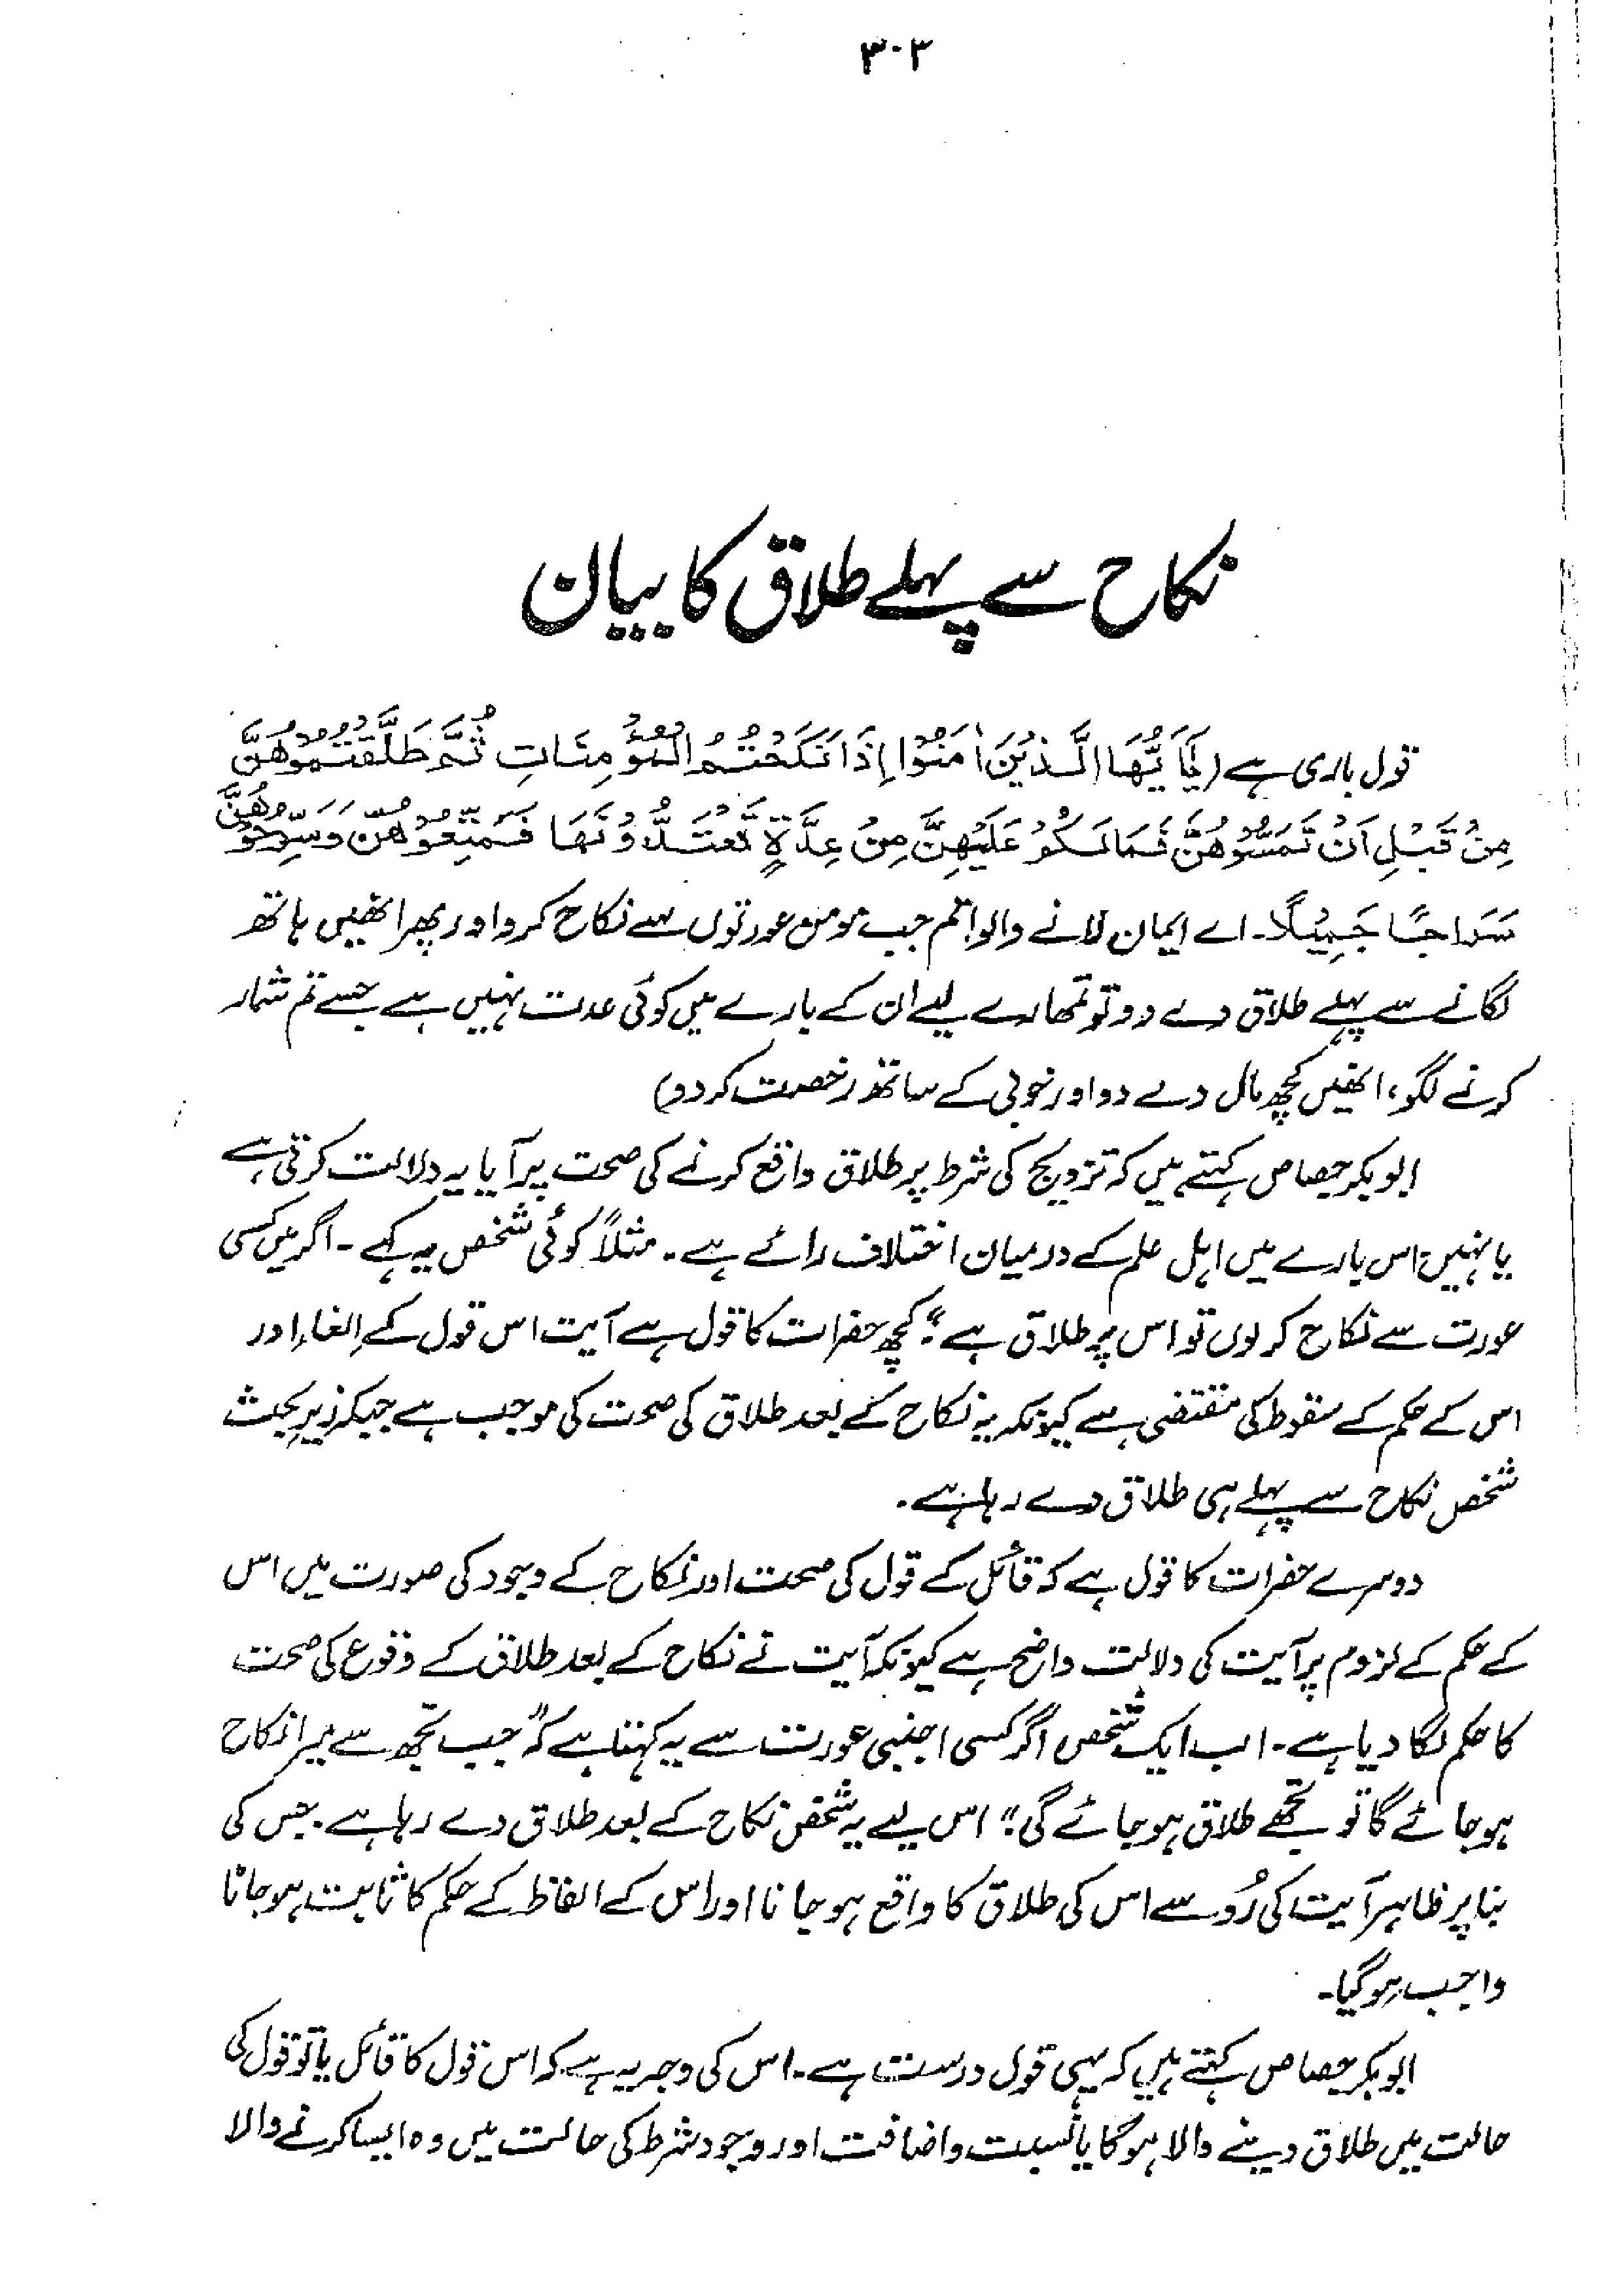 ۳۰۳
نکاح سے پہلے طلاق کا بیان
قول باری ہے (يٰٓاَيُّهَا الَّذِيْنَ اٰمَنُوْا اِذَا نَكَحْتُمُ الْمُؤْمِنَاتِ ثُمَّ طَلَّقْتُمُوْهُنَّ
مِنْ قَبْلِ اَنْ تَمَسُّوْهُنَّ فَمَا لَكُمْ عَلَيْهِنَّ مِنْ عِدَّةٍ تَعْتَدُّوْنَهَا فَمَتِّعُوْهُنَّ وَسَرِّحُوْهُنَّ
سَرَاحًا جَمِيْلًا۔ اے ایمان لانے والو! تم جب مومن عورتوں سے نکاح کرو اور پھر انھیں ہاتھ
لگانے سے پہلے طلاق دے دو تو تمھارے لیے ان کے بارے میں کوئی عدت نہیں ہے جسے تم شمار
کرنے لگو، انھیں کچھ مال دے دو اور خوبی کے ساتھ رخصت کر دو)
ابو بکر جصاص کہتے ہیں کہ تزویج کی شرط پر طلاق واقع کرنے کی صحت پر آیا یہ دلالت کرتی ہے
یا نہیں اس بارے میں اہل علم کے درمیان اختلاف رائے ہے۔ مثلاً کوئی شخص یہ کہے۔ اگر میں کسی
عورت سے نکاح کر لوں تو اس پر طلاق ہے" کچھ حضرات کا قول ہے آیت اس قول کے الغاء اور
اس کے حکم کے سقوط کی مقتضی ہے کیونکہ یہ نکاح کے بعد طلاق کی صحت کی موجب ہے جبکہ زیر بحث
شخص نکاح سے پہلے ہی طلاق دے رہا ہے۔
دوسرے حضرات کا قول ہے کہ قائل کے قول کی صحت اور نکاح کے وجود کی صورت میں اس
کے حکم کے لزوم پر آیت کی دلالت واضح ہے کیونکہ آیت نے نکاح کے بعد طلاق کے وقوع کی صحت
کا حکم لگا دیا ہے۔ اب ایک شخص اگر کسی اجنبی عورت سے یہ کہتا ہے کہ "جب تجھ سے میرا نکاح
ہو جائے گا تو تجھے طلاق ہو جائے گی" اس لیے یہ شخص نکاح کے بعد طلاق دے رہا ہے۔ جس کی
بنا پر ظاہر آیت کی رُو سے اس کی طلاق کا واقع ہو جانا اور اس کے الفاظ کے حکم کا ثابت ہو جانا
واجب ہو گیا۔
ابو بکر جصاص کہتے ہیں کہ یہی قول درست ہے۔ اس کی وجہ یہ ہے کہ اس قول کا قائل یا تو قول کی
حالت میں طلاق دینے والا ہو گا یا نسبت و اضافت اور وجود شرط کی حالت میں وہ ایسا کرنے والا